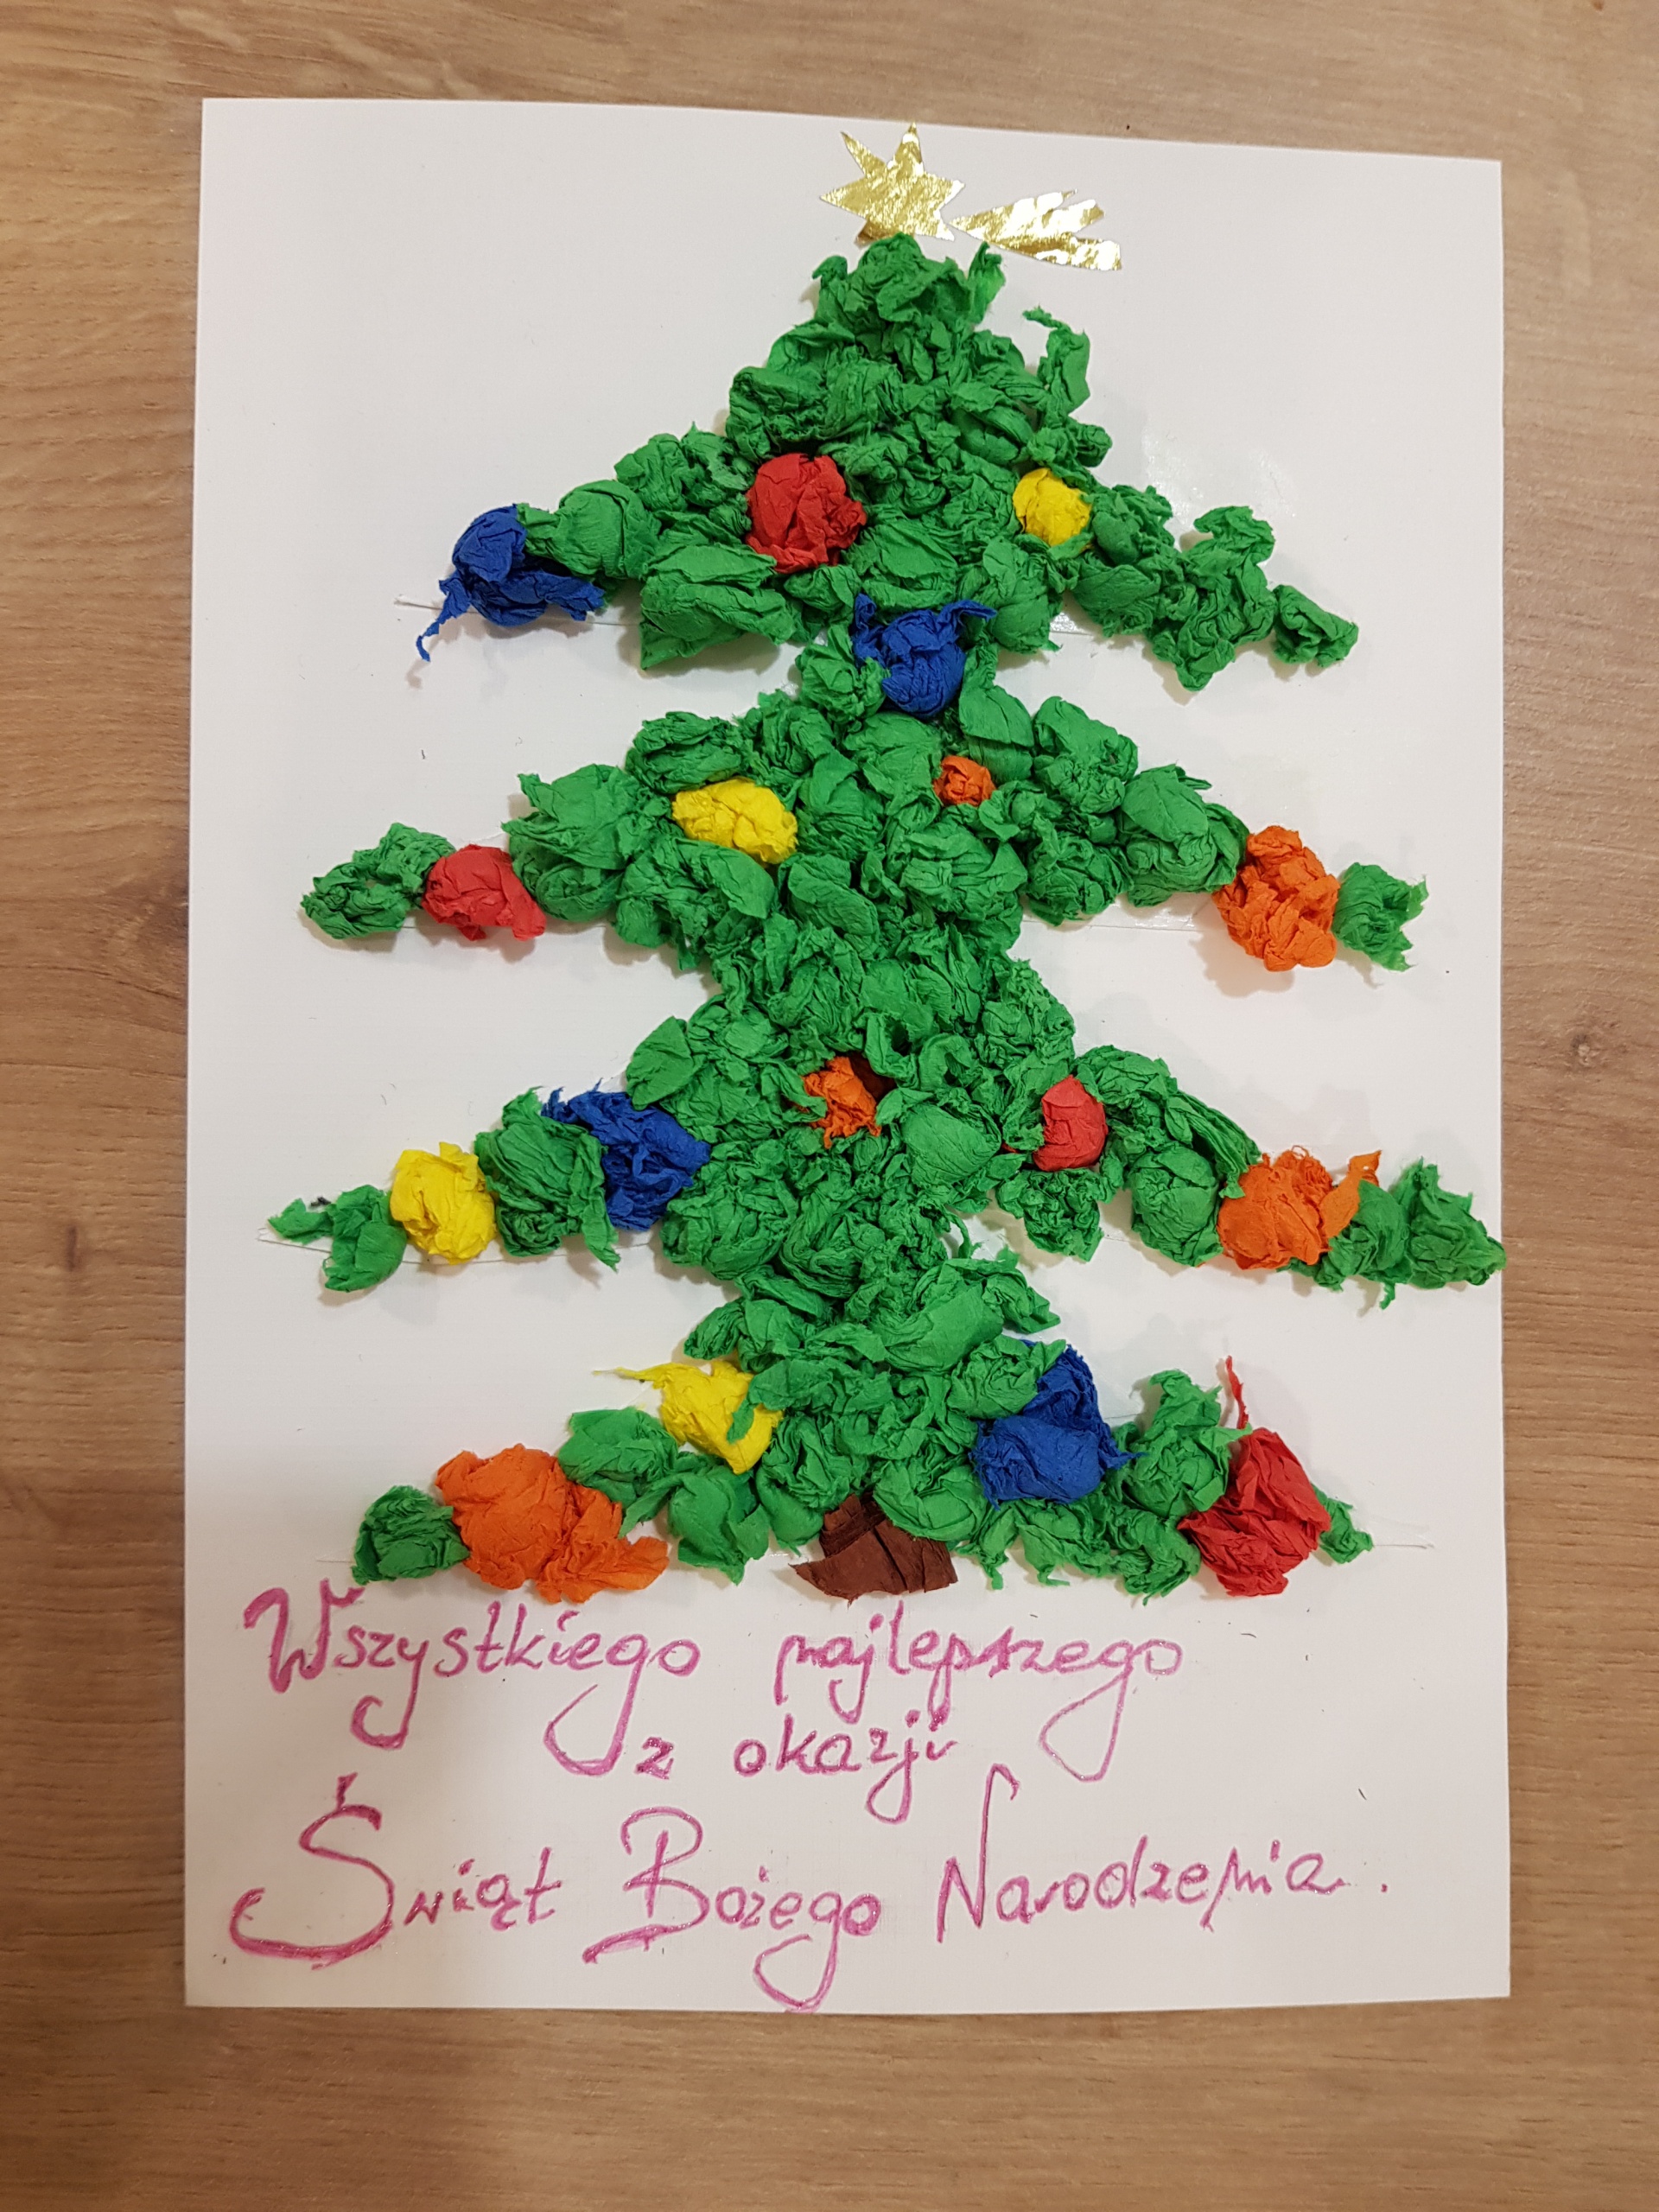 Wszystkiego najlepszego
z okazji
Świąt Bożego Narodzenia.